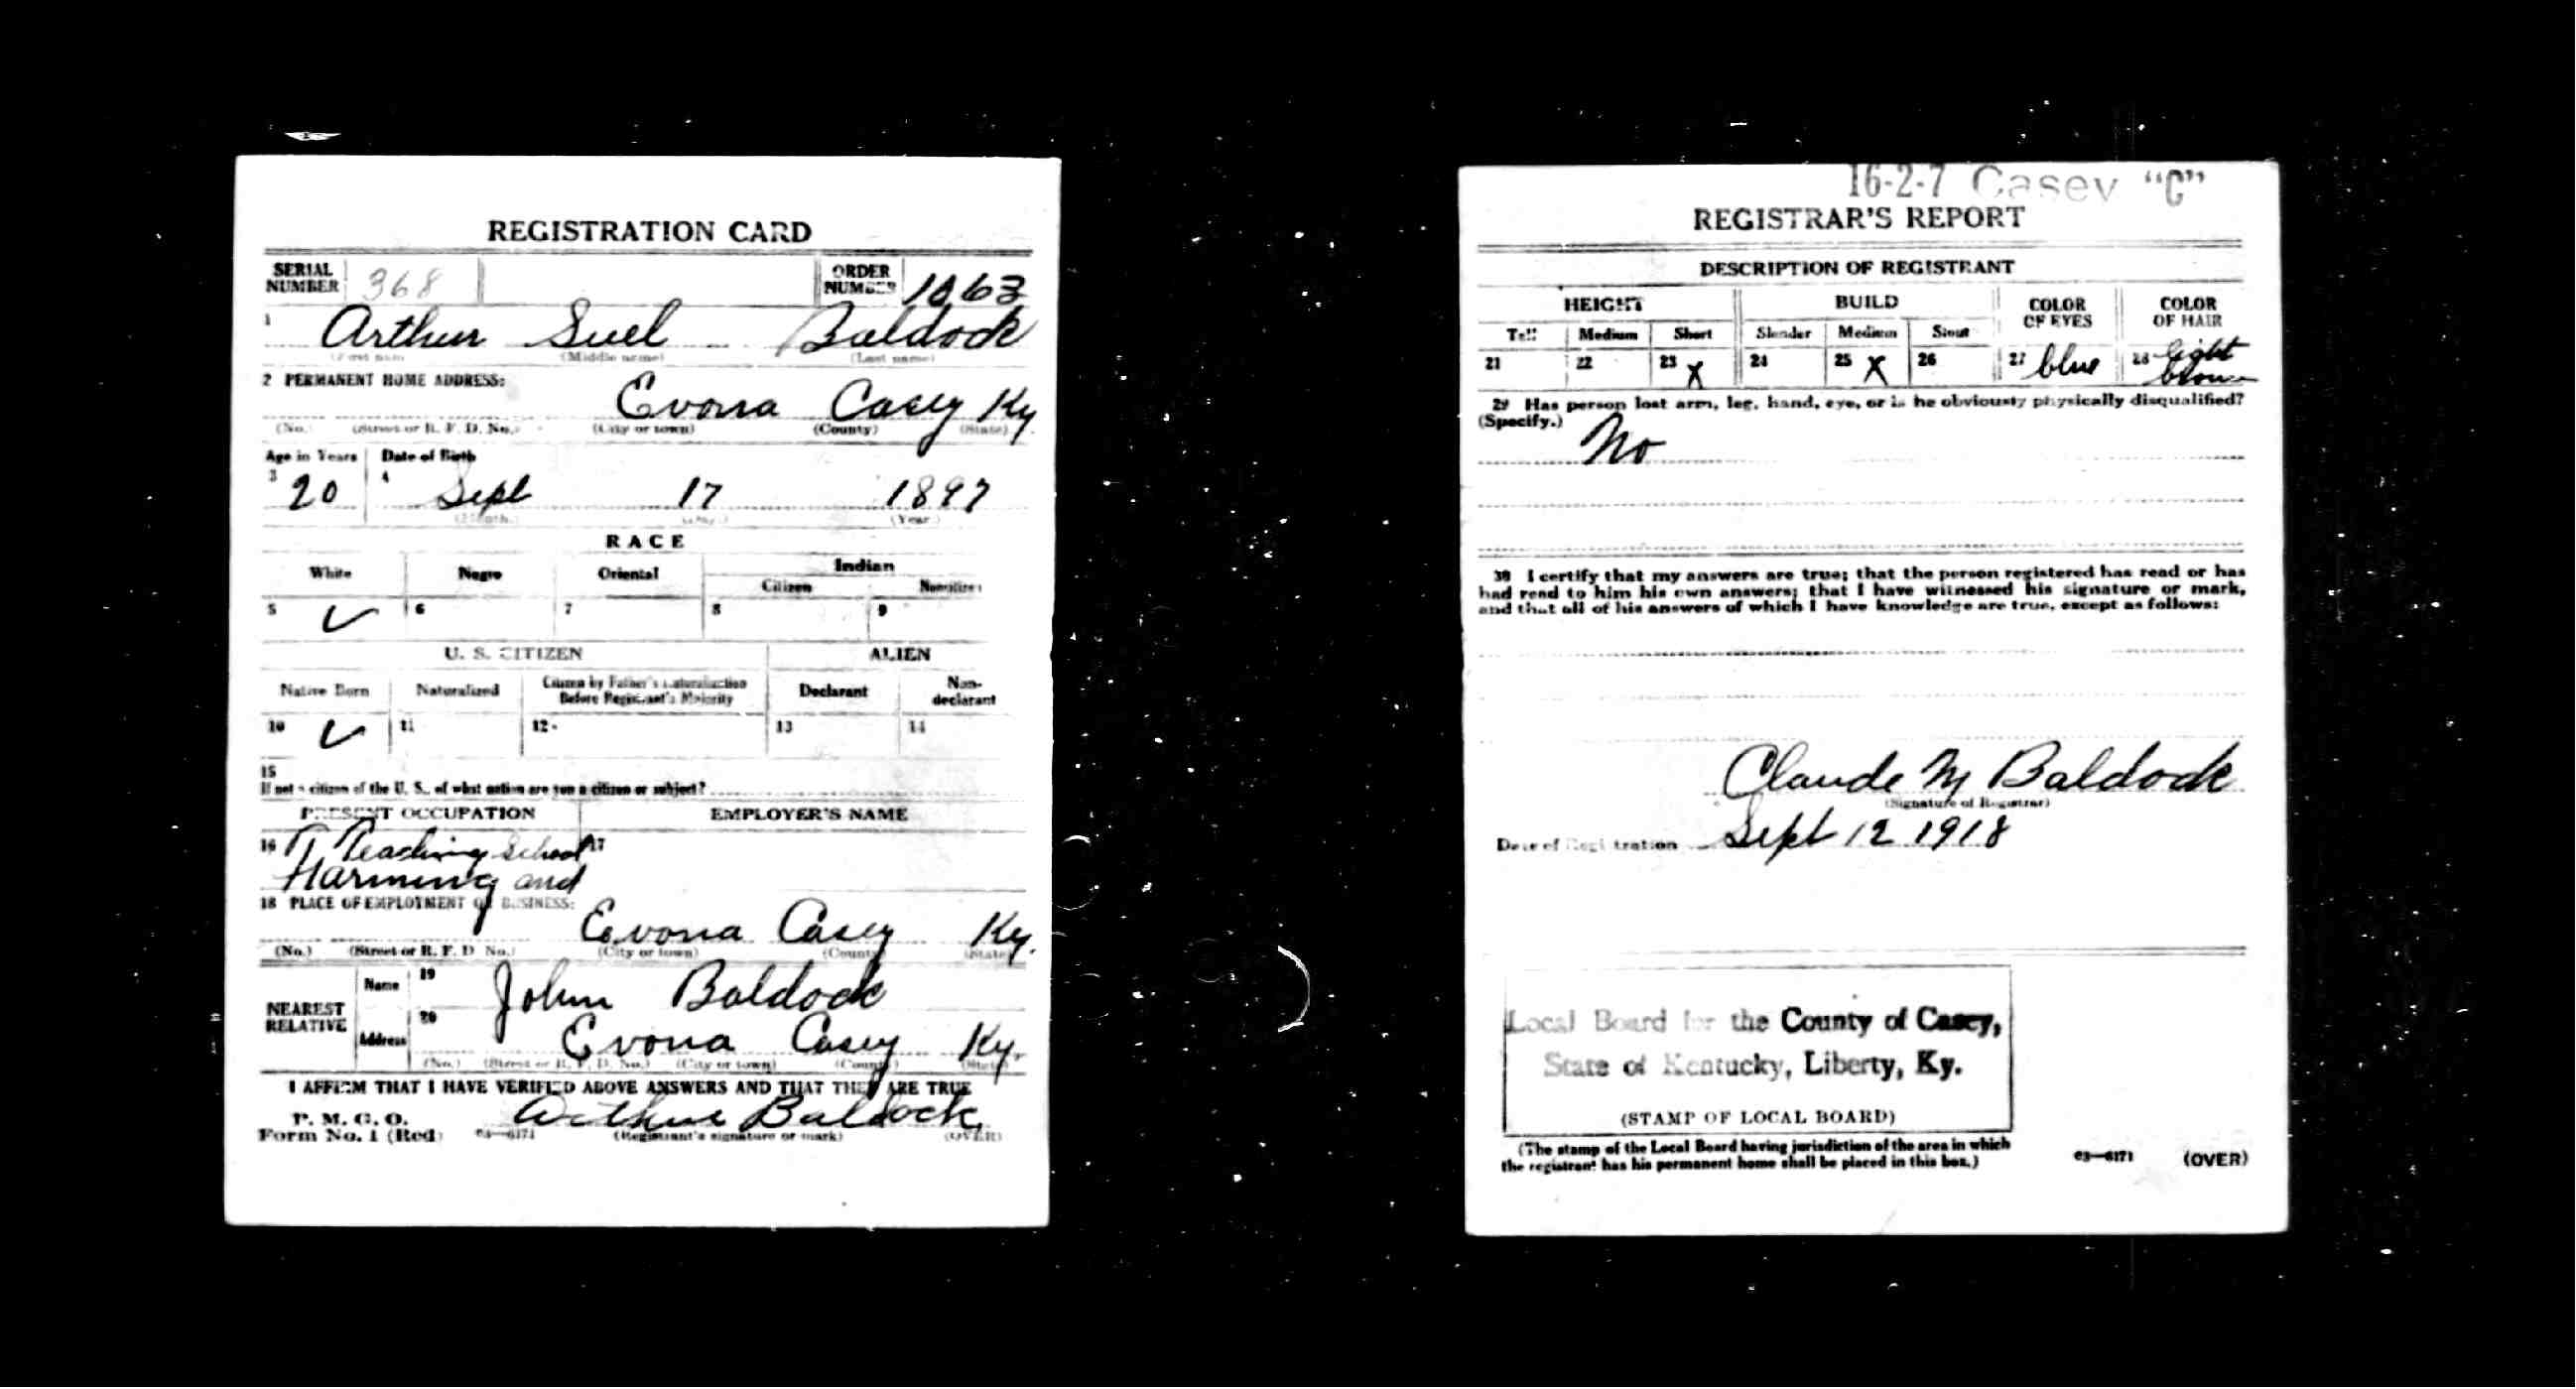 REGISTRATION CARD
SERIAL NUMBER 368 ORDER NUMBER 1063
1 Arthur Suel Baldock
(First name) (Middle name) (Last name)
2 PERMANENT HOME ADDRESS:
Evona Casey Ky
(No.) (Street or R. F. D. No.) (City or town) (County) (State)
Age in Years Date of Birth
3 20 4 Sept 17 1897
(Month.) (Day.) (Year.)
RACE
White Negro Oriental Indian
Citizen Noncitizen
5 ✓ 6 7 8 9
U. S. CITIZEN ALIEN
Native Born Naturalized Citizen by Father's Naturalization Before Registrant's Majority Declarant Non-declarant
10 ✓ 11 12 13 14
15
If not a citizen of the U. S., of what nation are you a citizen or subject?
PRESENT OCCUPATION EMPLOYER'S NAME
16 Teaching School 17
Farming and
18 PLACE OF EMPLOYMENT OR BUSINESS:
Evona Casey Ky.
(No.) (Street or R. F. D. No.) (City or town) (County) (State)
NEAREST RELATIVE
Name 19 John Baldock
Address 20 Evona Casey Ky.
(No.) (Street or R. F. D. No.) (City or town) (County) (State)
I AFFIRM THAT I HAVE VERIFIED ABOVE ANSWERS AND THAT THEY ARE TRUE
P. M. G. O.
Form No. 1 (Red) 03—6171 Arthur Baldock
(Registrant's signature or mark) (OVER)
16-2-7 Casey "C"
REGISTRAR'S REPORT
DESCRIPTION OF REGISTRANT
HEIGHT BUILD COLOR OF EYES COLOR OF HAIR
Tall Medium Short Slender Medium Stout
21 22 23 X 24 25 X 26 27 blue 28 light brown
29 Has person lost arm, leg, hand, eye, or is he obviously physically disqualified?
(Specify.) No
30 I certify that my answers are true; that the person registered has read or has
had read to him his own answers; that I have witnessed his signature or mark,
and that all of his answers of which I have knowledge are true, except as follows:
Claude M Baldock
(Signature of Registrar)
Date of Registration Sept 12 1918
Local Board for the County of Casey,
State of Kentucky, Liberty, Ky.
(STAMP OF LOCAL BOARD)
(The stamp of the Local Board having jurisdiction of the area in which
the registrant has his permanent home shall be placed in this box.)
03—6171 (OVER)